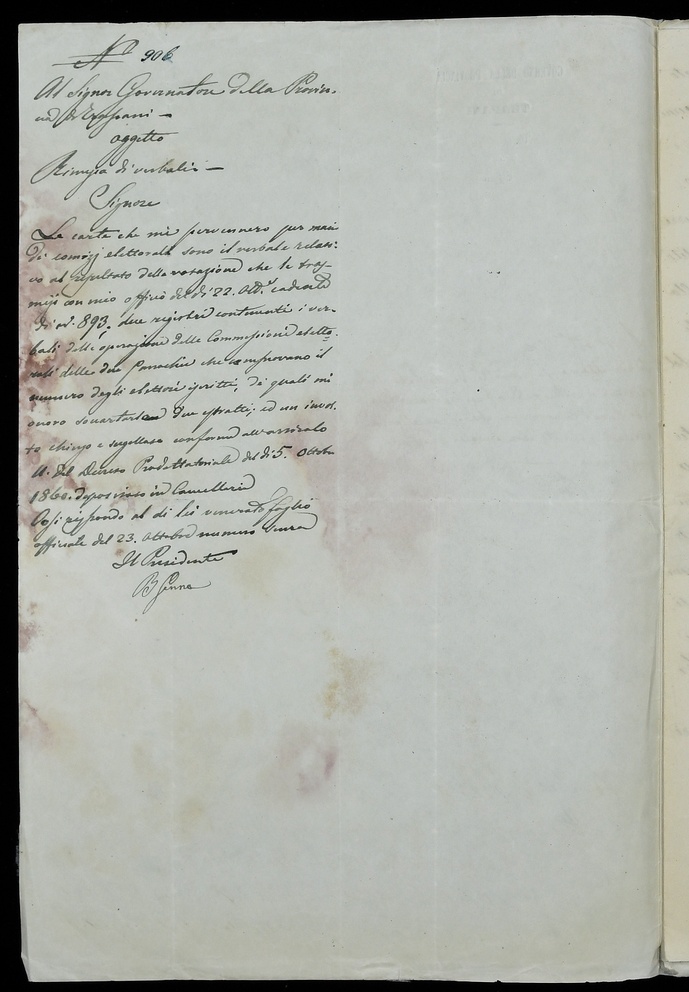 N° 906
Al Signor Governatore della Provin-
cia di Trapani —
Oggetto
Rimessa di verbali —
Signore
Le carte che mi pervennero per mani
di comizj elettorali sono il verbale relati-
vo al risultato della votazione che le tras-
misi con mio officio del dì 22. Ott.e cadente
di n.° 893, due registri contenenti i ver-
bali delle operazione delle Commessioni eletto-
rali delle due Parrocchie che comprovano il
numero degli elettori iscritti, de' quali mi
onoro due estratti; ed un invol-
to chiuso e sugellato conforme all'articolo
del Decreto Prodittatoriale del dì 5. Ottobre
1860. depositato in Cancelleria
Così rispondo al di lei venerato foglio
officiale del 23. Ottobre numero
Il Presidente
B Genna